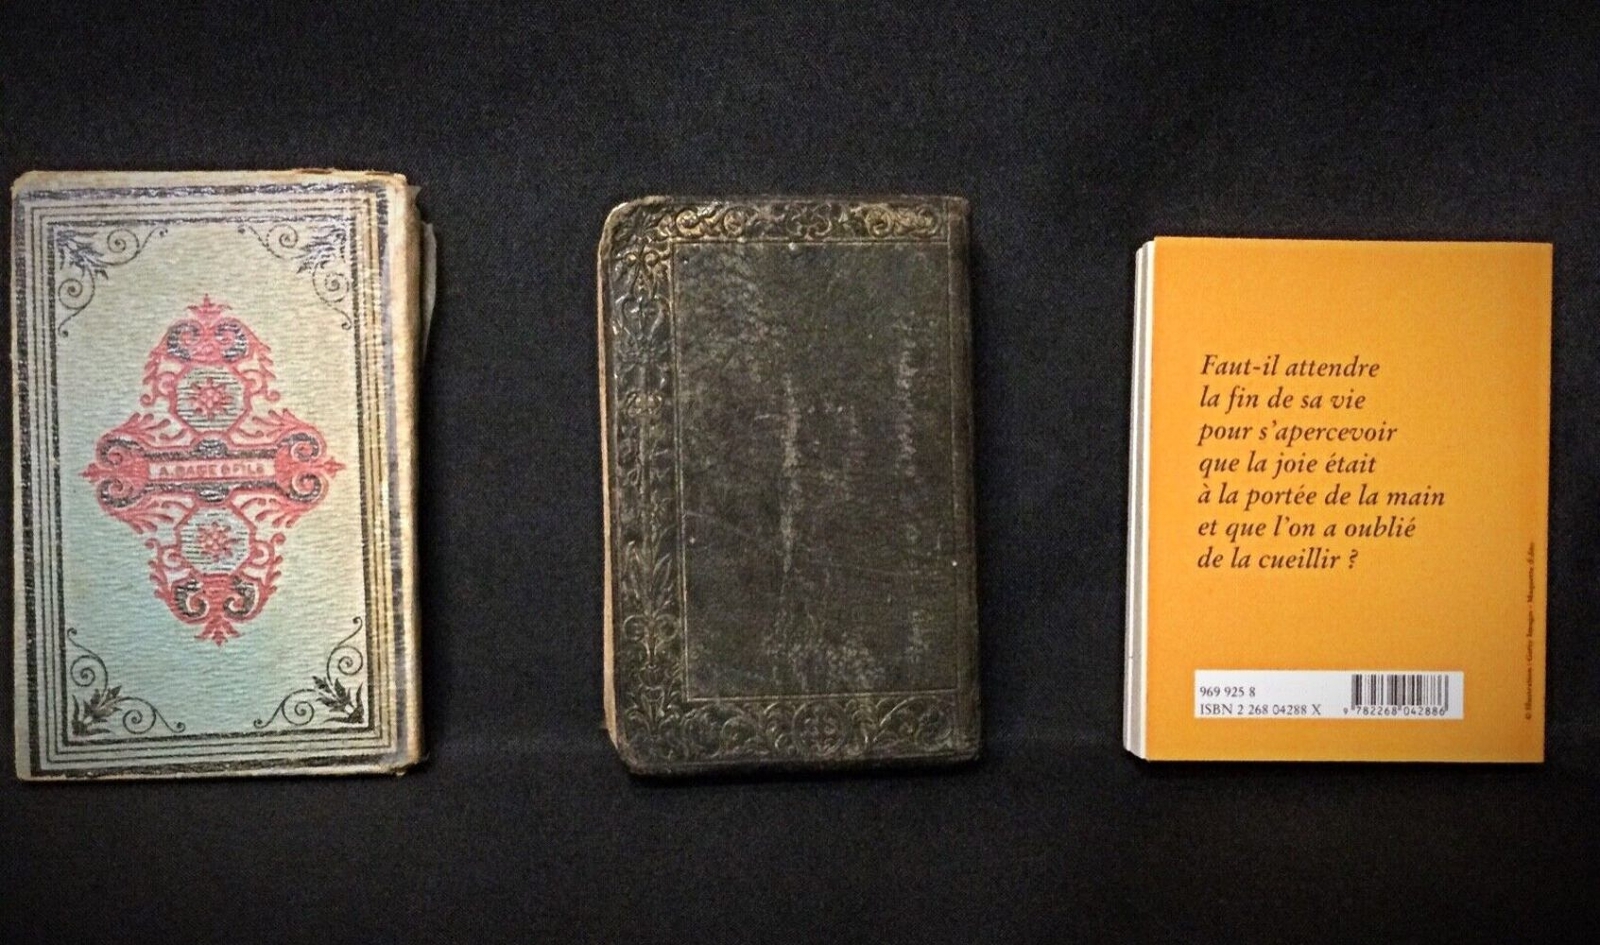 A. BARBE & FILS
Faut-il attendre
la fin de sa vie
pour s'apercevoir
que la joie était
à la portée de la main
et que l'on a oublié
de la cueillir ?
969 925 8
ISBN 2 268 04288 X
9 782268 042886
© Illustration : Getty Images - Maquette d.dni